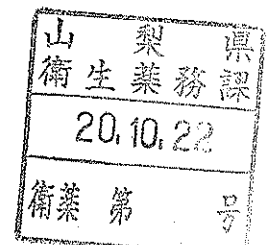 山梨県
衛生薬務課
20.10.22
衛薬 第 号